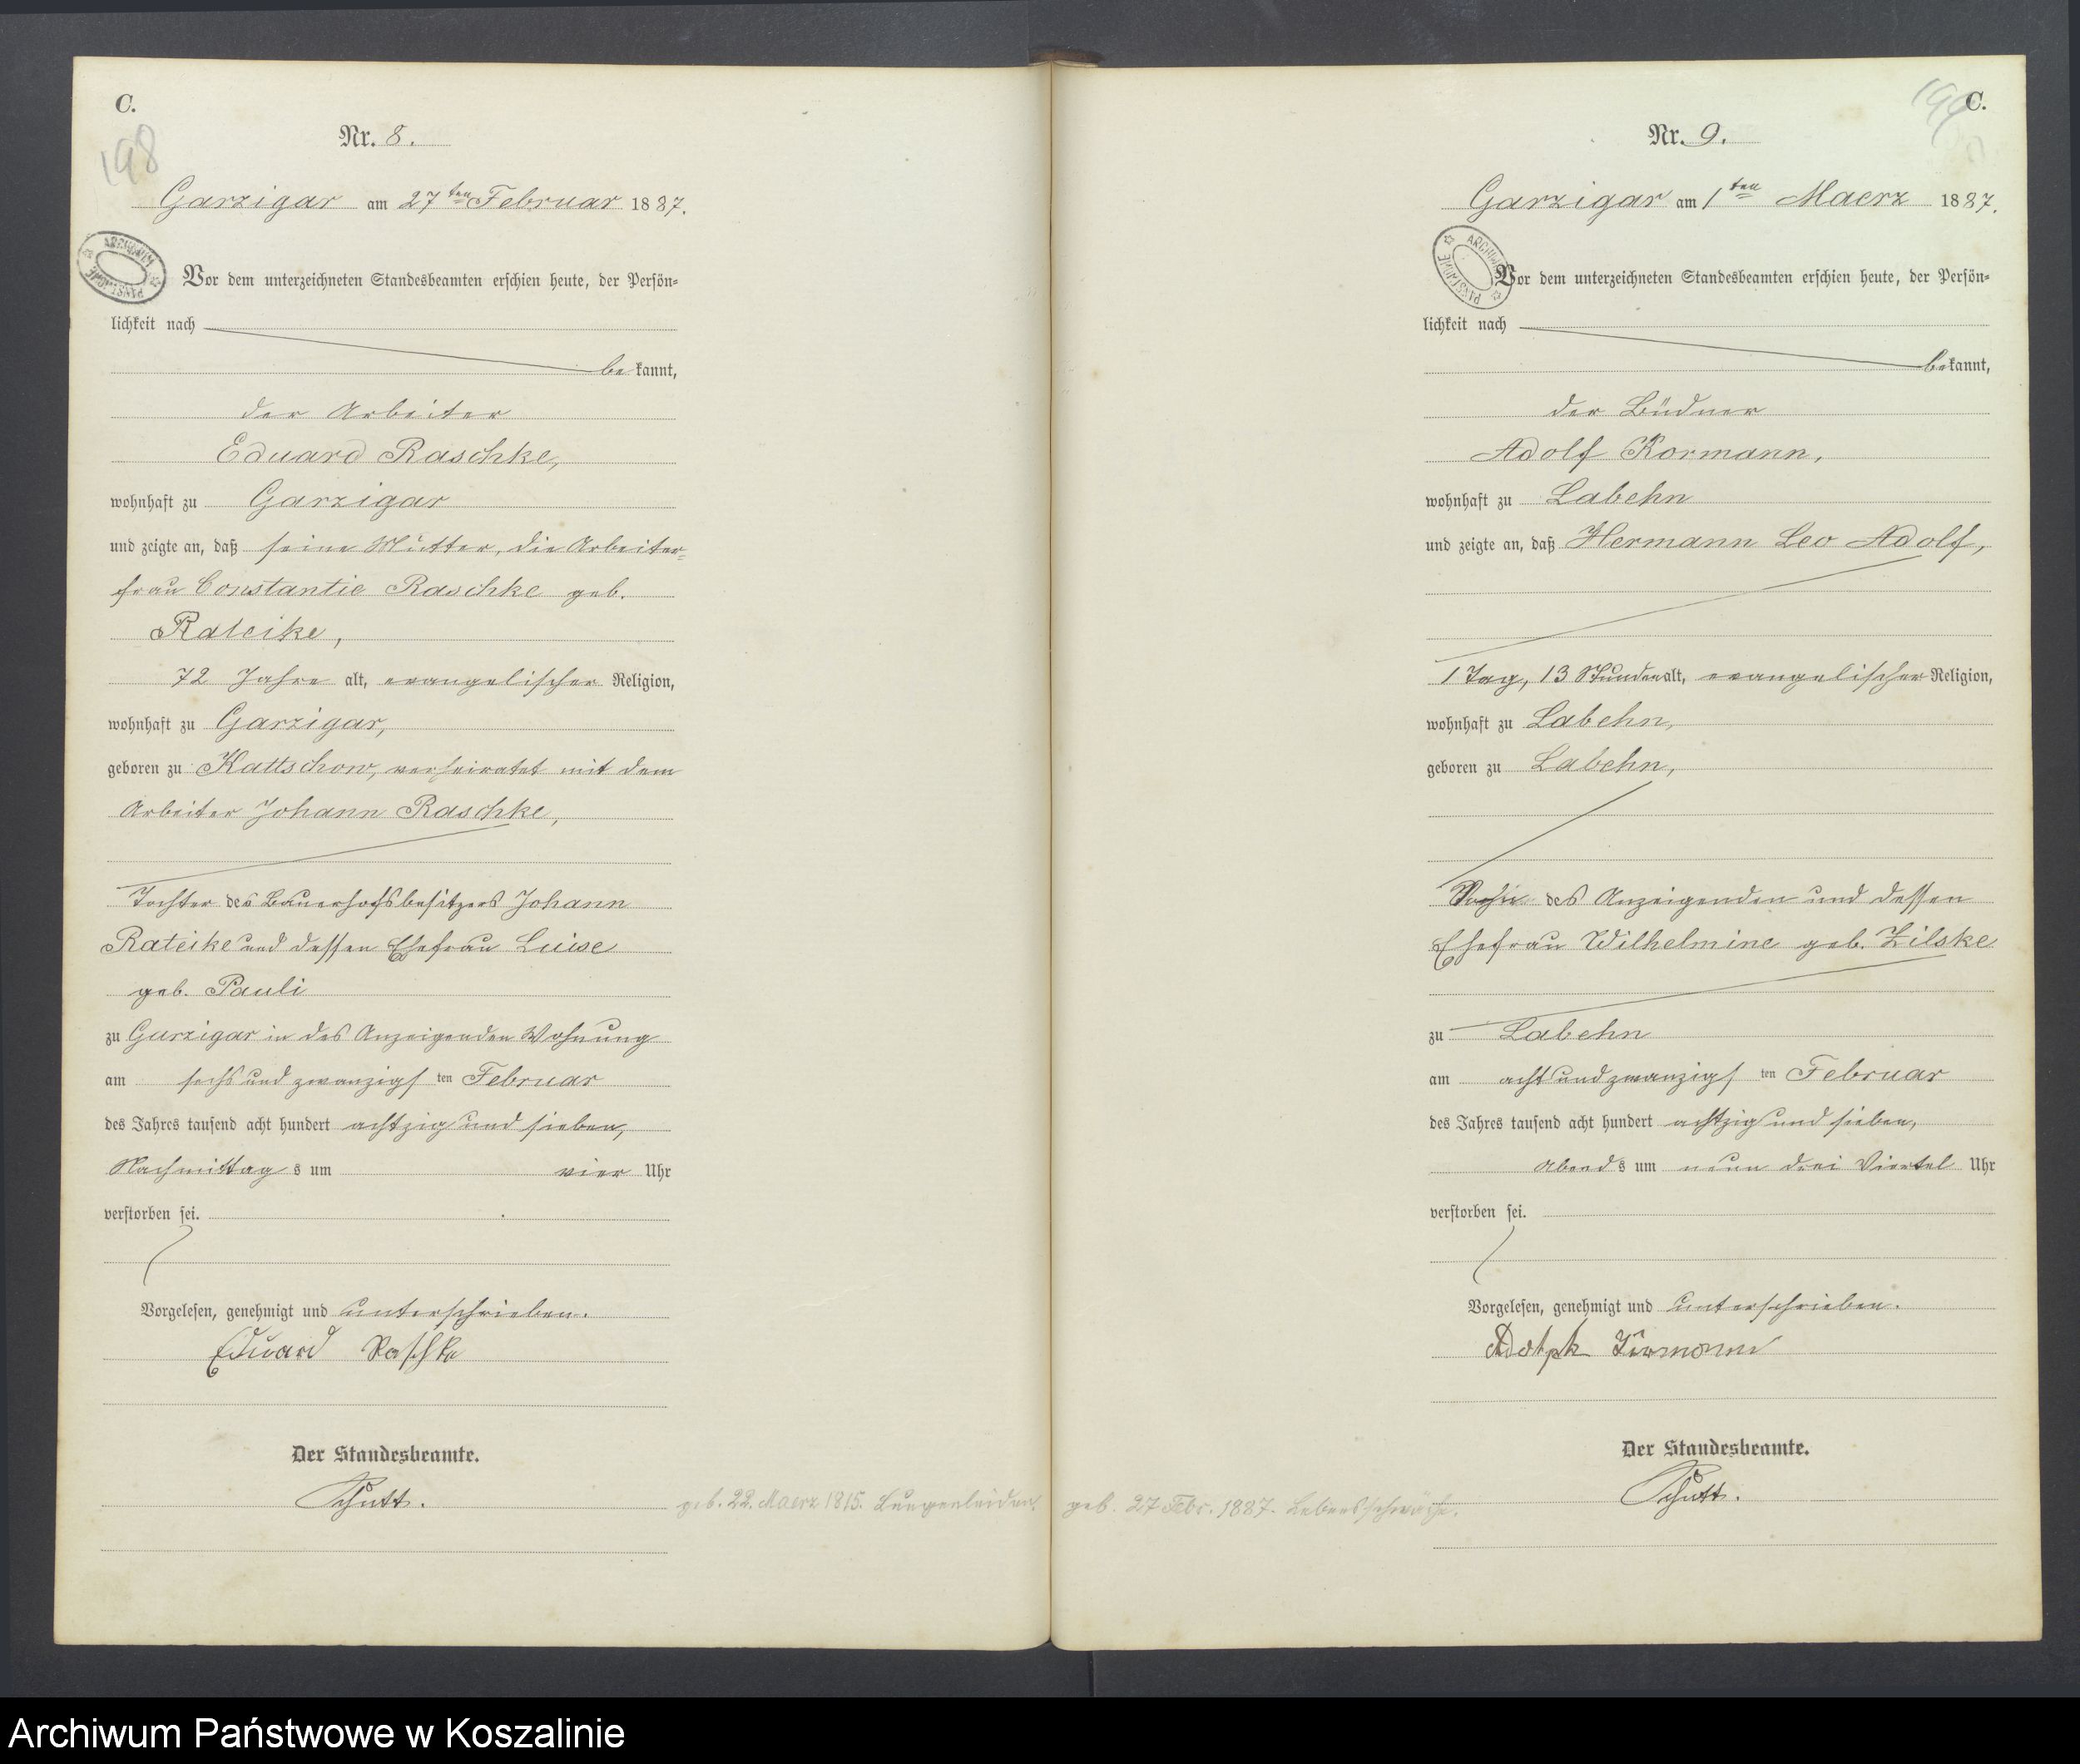 C.
198
Nr. 8.
Garzigar am 27ten Februar 1887.
ARCHIWUM PAŃSTWOWE
Vor dem unterzeichneten Standesbeamten erschien heute, der Persön-
lichkeit nach
be kannt,
der Arbeiter
Eduard Raschke,
wohnhaft zu Garzigar
und zeigte an, daß seine Mutter, die Arbeiter-
frau Constantie Raschke geb.
Rateike,
72 Jahre alt, evangelischer Religion,
wohnhaft zu Garzigar,
geboren zu Kattschow, verheiratet mit dem
Arbeiter Johann Raschke,
Tochter des Bauerhofsbesitzers Johann
Rateike und dessen Ehefrau Luise
geb. Pauli
zu Garzigar in des Anzeigenden Wohnung
am sechs und zwanzigs ten Februar
des Jahres tausend acht hundert achtzig und sieben,
Nachmittag s um vier Uhr
verstorben sei.
Vorgelesen, genehmigt und unterschrieben.
Eduard Raschke
Der Standesbeamte.
Schutt.
geb. 22. Maerz 1815. Lungenleiden.
C.
199
Nr. 9.
Garzigar am 1ten Maerz 1887.
ARCHIWUM PAŃSTWOWE
Vor dem unterzeichneten Standesbeamten erschien heute, der Persön-
lichkeit nach
be kannt,
der Büdner
Adolf Kormann,
wohnhaft zu Labehn
und zeigte an, daß Hermann Leo Adolf,
1 Tag, 13 Stunden alt, evangelischer Religion,
wohnhaft zu Labehn,
geboren zu Labehn,
Sohn des Anzeigenden und dessen
Ehefrau Wilhelmine geb. Zilske
zu Labehn
am acht und zwanzigs ten Februar
des Jahres tausend acht hundert achtzig und sieben,
Abend s um neun drei Viertel Uhr
verstorben sei.
Vorgelesen, genehmigt und unterschrieben.
Adolph
Der Standesbeamte.
Schutt.
geb. 27 Febr. 1887. Lebensschwäche.
Archiwum Państwowe w Koszalinie